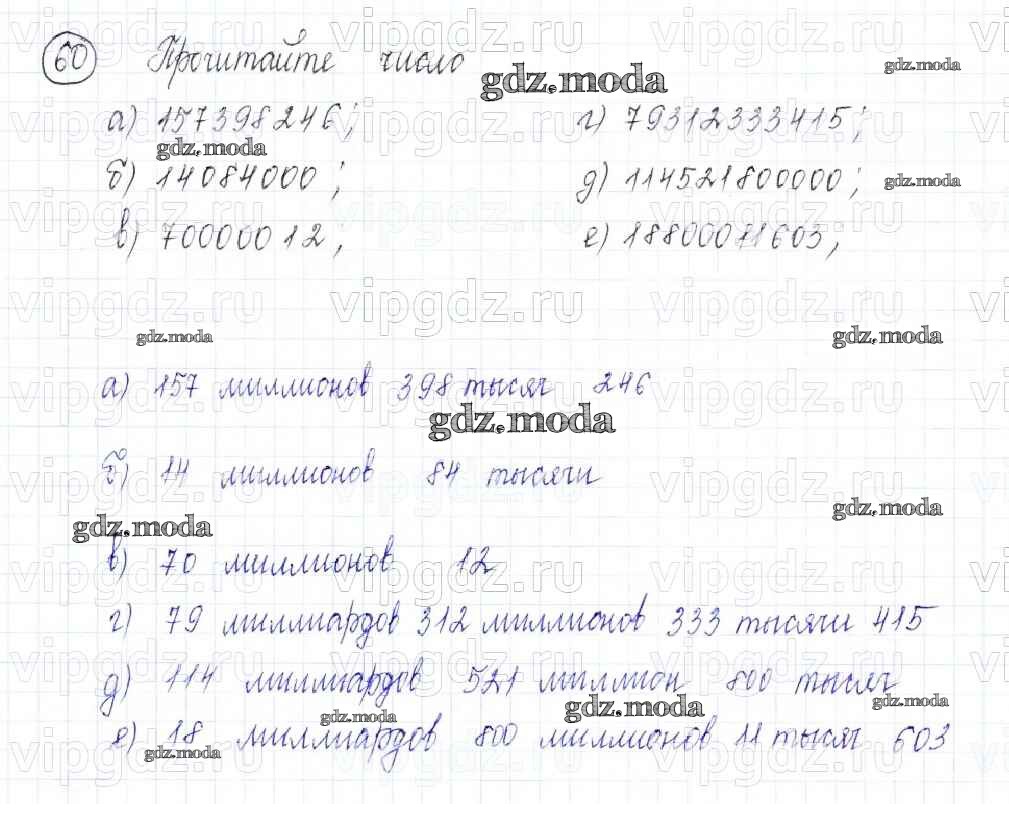 60 Прочитайте число
а) 157398246; г) 79312333415;
б) 14084000; д) 114521800000;
в) 70000012; е) 18800011603;
а) 157 миллионов 398 тысяч 246
б) 14 миллионов 84 тысячи
в) 70 миллионов 12
г) 79 миллиардов 312 миллионов 333 тысячи 415
д) 114 миллиардов 521 миллион 800 тысяч
е) 18 миллиардов 800 миллионов 11 тысяч 603
gdz.moda
vipgdz.ru